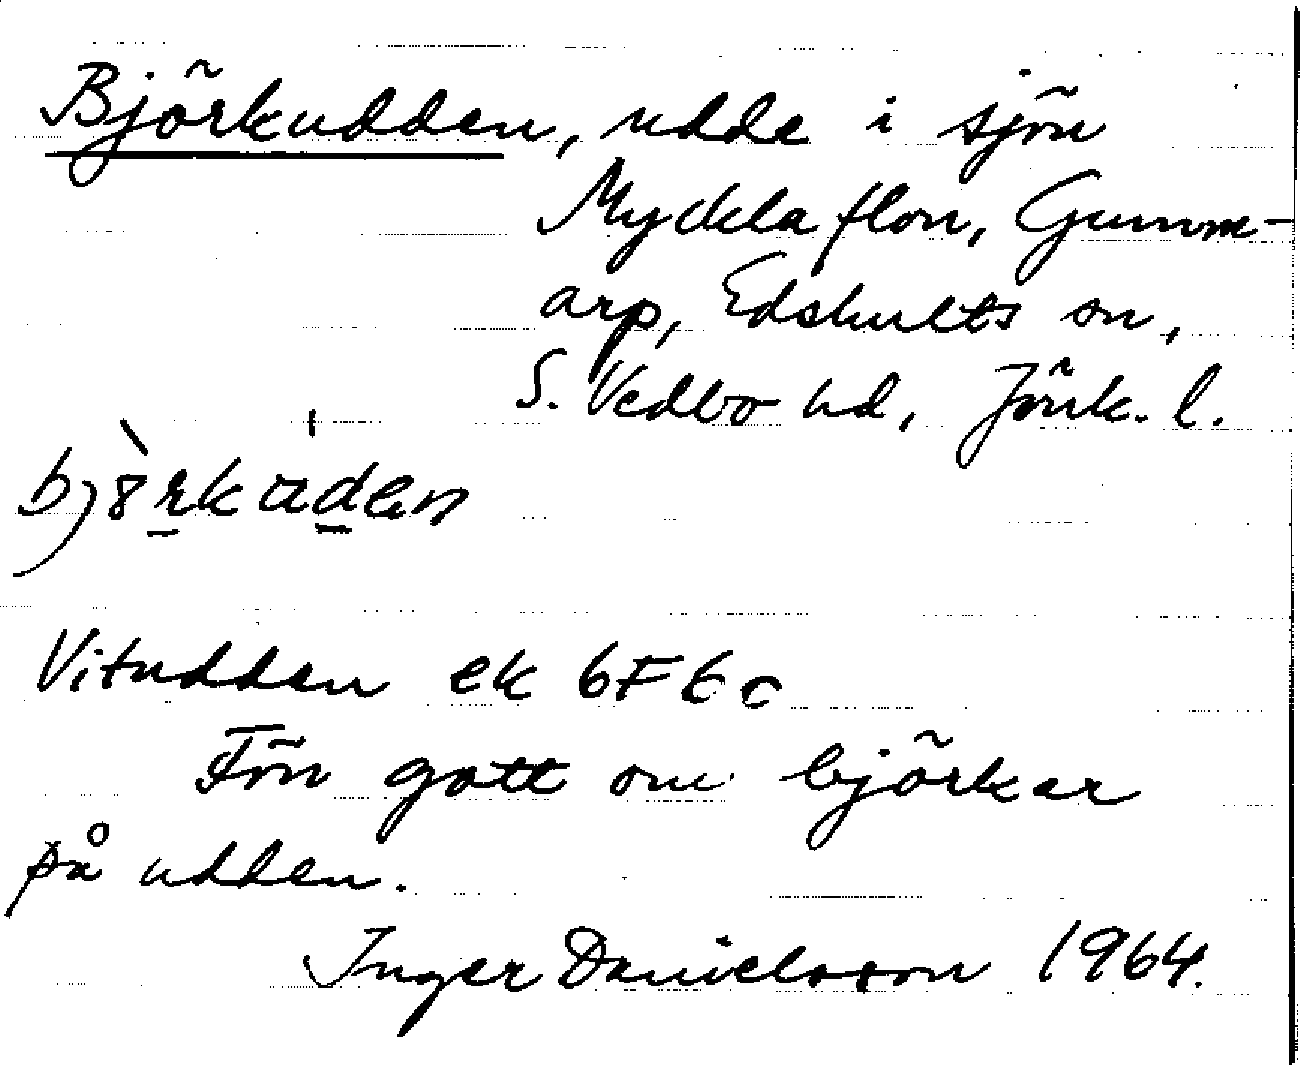 Björkudden, udde i sjön
Mycklaflon, Gumm-
arp, Edshults sn,
S. Vedbo hd, Jönk. l.
Vitudden ek 6F6c
Förr gott om björkar
på udden.
Inger Danielsson 1964.